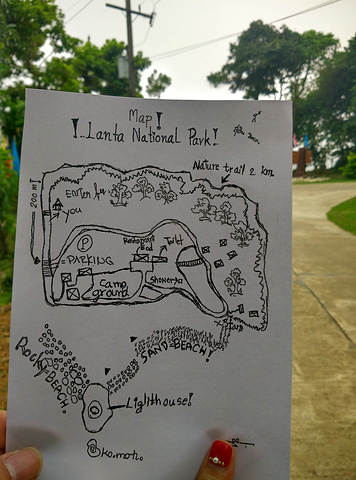 Map!
!..Lanta National Park!
Nature trail 2 km.
200 m!
Enter
you
Restaurant
food
Toilet
P
=PARKING
Camp
ground
Showers
SAND BEACH!
Rocky
BEACH!
Lighthouse!